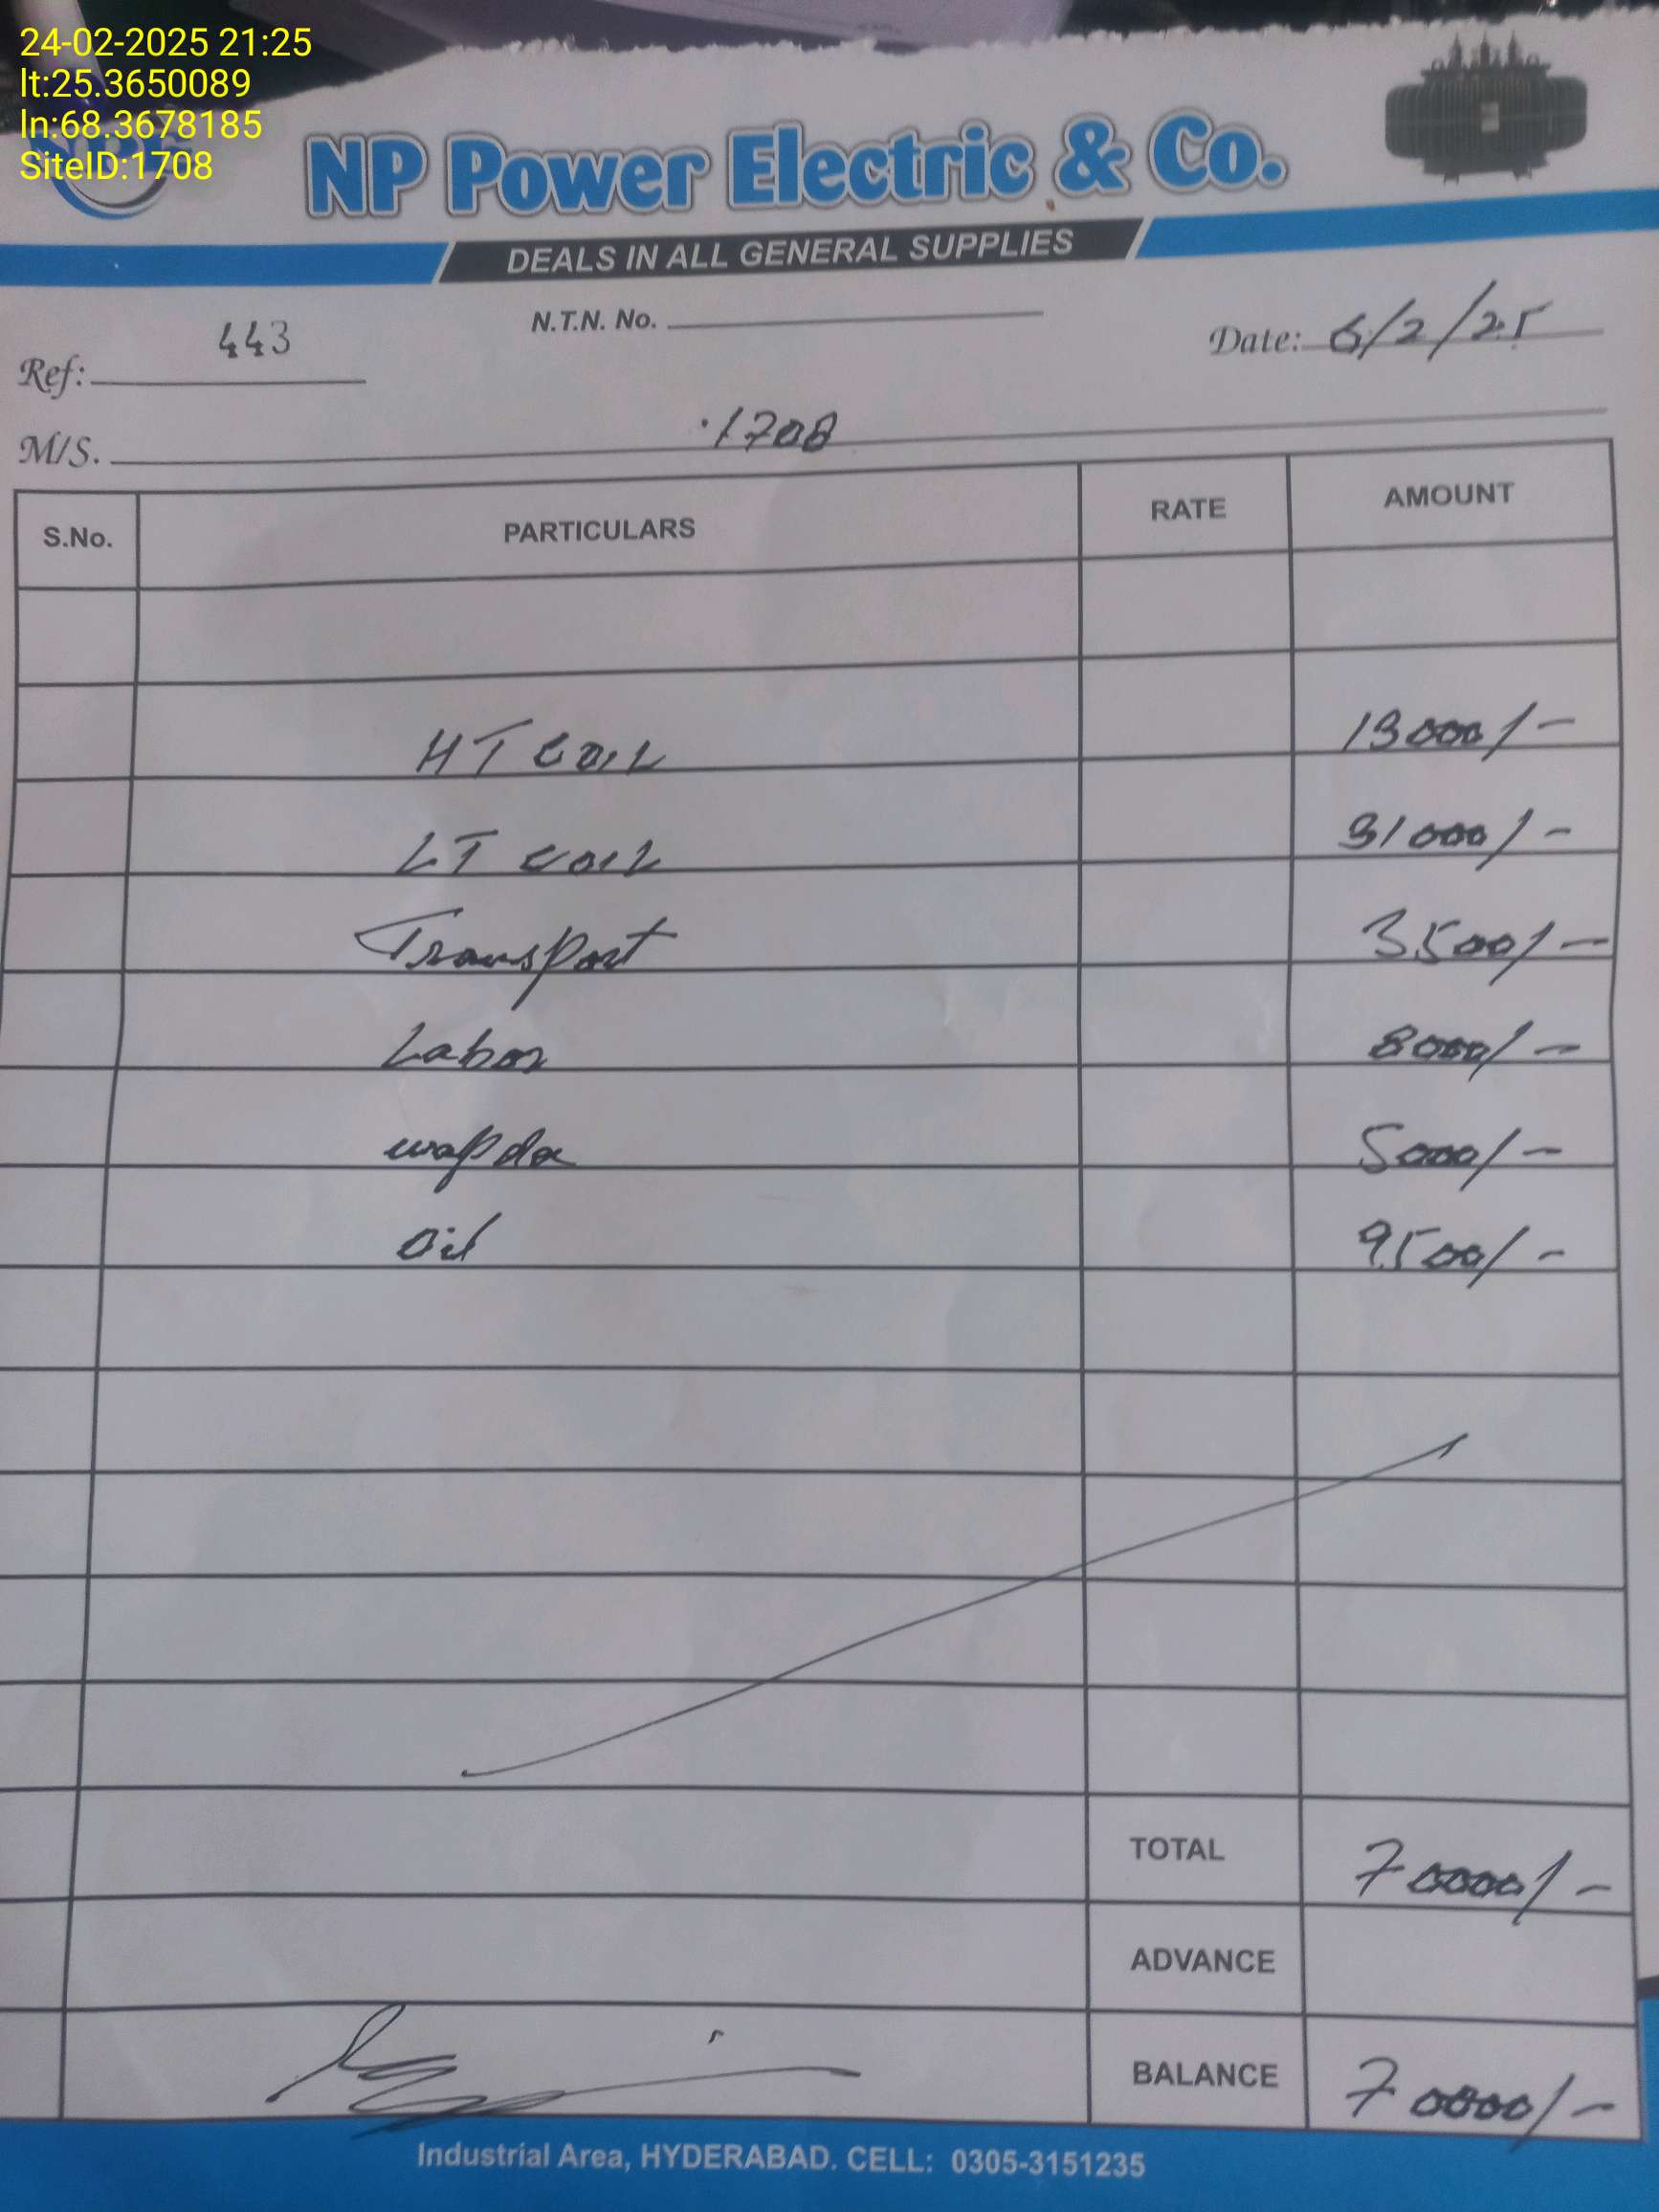 24-02-2025 21:25
lt:25.3650089
ln:68.3678185
SiteID:1708
NP Power Electric & Co.
DEALS IN ALL GENERAL SUPPLIES
Ref: 443 N.T.N. No. Date: 6/2/25
M/S. 1708
S.No. PARTICULARS RATE AMOUNT
HT COIL 13000/-
LT COIL 31000/-
Transport 3500/-
Labor 8000/-
wapda 5000/-
Oil 9500/-
TOTAL 70000/-
ADVANCE
BALANCE 70000/-
Industrial Area, HYDERABAD. CELL: 0305-3151235